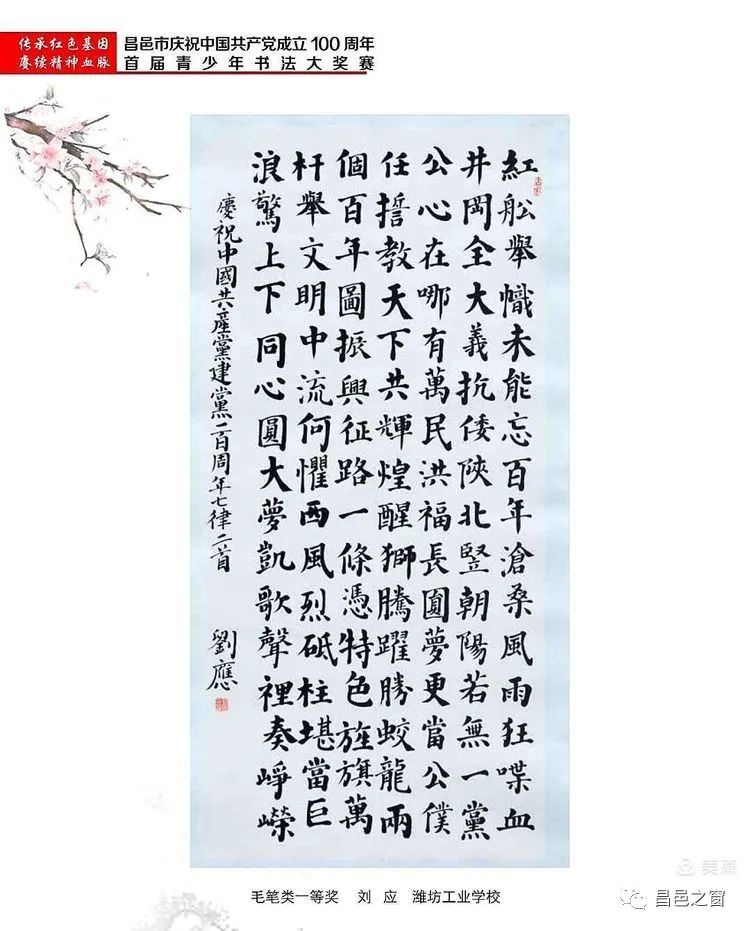 传承红色基因
赓续精神血脉
昌邑市庆祝中国共产党成立100周年
首届青少年书法大奖赛
紅船舉幟未能忘百年滄桑風雨狂喋血
井岡全大義抗倭陝北竪朝陽若無一黨
公心在哪有萬民洪福長圓夢更當公僕
任誓教天下共輝煌醒獅騰躍勝蛟龍兩
個百年圖振興征路一條憑特色旌旗萬
杆舉文明中流何懼西風烈砥柱堪當巨
浪驚上下同心圓大夢凱歌聲裡奏崢嶸
慶祝中國共產黨建黨一百周年七律二首
劉應
毛笔类一等奖 刘 应 潍坊工业学校
美篇
昌邑之窗